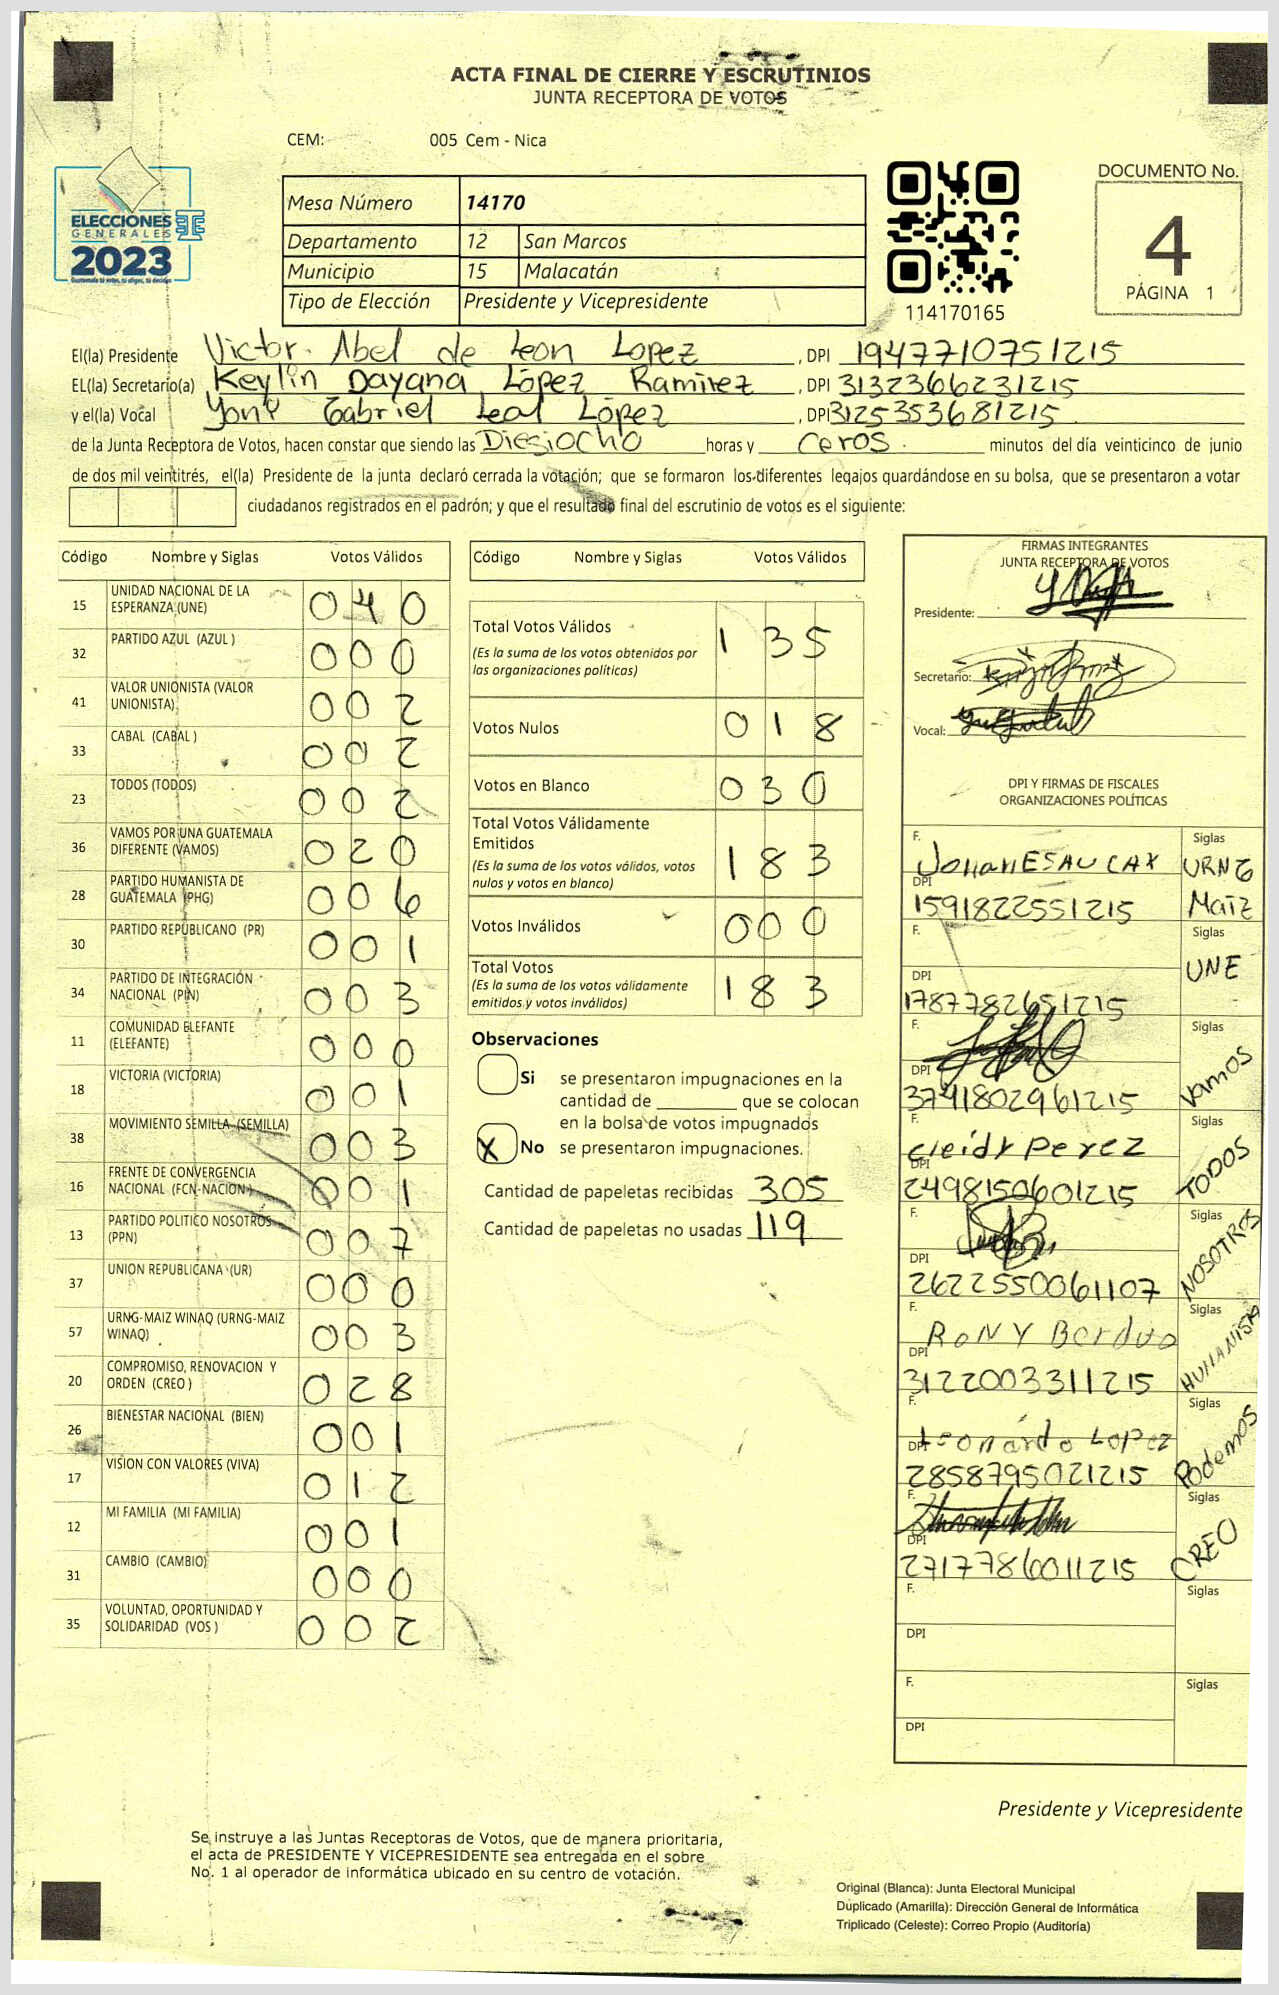 ACTA FINAL DE CIERRE Y ESCRUTINIOS
JUNTA RECEPTORA DE VOTOS
CEM: 005 Cem - Nica
ELECCIONES
GENERALES
2023
Mesa Número 14170
Departamento 12 San Marcos
Municipio 15 Malacatán
Tipo de Elección Presidente y Vicepresidente
114170165
DOCUMENTO No.
4
PÁGINA 1
El(la) Presidente Victor Abel de Leon Lopez, DPI 1947710751215
EL(la) Secretario(a) Keylin Dayana López Ramirez, DPI 3132366231215
y el(la) Vocal Yony Gabriel Leal López, DPI 3125353681215
de la Junta Receptora de Votos, hacen constar que siendo las Diesiocho horas y ceros minutos del día veinticinco de junio
de dos mil veintitrés, el(la) Presidente de la junta declaró cerrada la votación; que se formaron los diferentes legajos guardándose en su bolsa, que se presentaron a votar
ciudadanos registrados en el padrón; y que el resultado final del escrutinio de votos es el siguiente:
Código Nombre y Siglas Votos Válidos
15 UNIDAD NACIONAL DE LA ESPERANZA (UNE) 040
32 PARTIDO AZUL (AZUL ) 000
41 VALOR UNIONISTA (VALOR UNIONISTA) 002
33 CABAL (CABAL ) 002
23 TODOS (TODOS) 002
36 VAMOS POR UNA GUATEMALA DIFERENTE (VAMOS) 020
28 PARTIDO HUMANISTA DE GUATEMALA (PHG) 006
30 PARTIDO REPUBLICANO (PR) 001
34 PARTIDO DE INTEGRACIÓN NACIONAL (PIN) 003
11 COMUNIDAD ELEFANTE (ELEFANTE) 000
18 VICTORIA (VICTORIA) 001
38 MOVIMIENTO SEMILLA (SEMILLA) 003
16 FRENTE DE CONVERGENCIA NACIONAL (FCN-NACION) 001
13 PARTIDO POLITICO NOSOTROS (PPN) 007
37 UNION REPUBLICANA (UR) 000
57 URNG-MAIZ WINAQ (URNG-MAIZ WINAQ) 003
20 COMPROMISO, RENOVACION Y ORDEN (CREO ) 028
26 BIENESTAR NACIONAL (BIEN) 001
17 VISION CON VALORES (VIVA) 012
12 MI FAMILIA (MI FAMILIA) 001
31 CAMBIO (CAMBIO) 000
35 VOLUNTAD, OPORTUNIDAD Y SOLIDARIDAD (VOS ) 002
Código Nombre y Siglas Votos Válidos
Total Votos Válidos 135
(Es la suma de los votos obtenidos por
las organizaciones políticas)
Votos Nulos 018
Votos en Blanco 030
Total Votos Válidamente
Emitidos 183
(Es la suma de los votos válidos, votos
nulos y votos en blanco)
Votos Inválidos 000
Total Votos 183
(Es la suma de los votos válidamente
emitidos y votos inválidos)
Observaciones
Si se presentaron impugnaciones en la
cantidad de ________ que se colocan
en la bolsa de votos impugnados
X No se presentaron impugnaciones.
Cantidad de papeletas recibidas 305
Cantidad de papeletas no usadas 119
FIRMAS INTEGRANTES
JUNTA RECEPTORA DE VOTOS
Presidente:
Secretario:
Vocal:
DPI Y FIRMAS DE FISCALES
ORGANIZACIONES POLÍTICAS
F. Siglas
Johan ESAU CAX URNG
DPI
1591822551215 Maiz
F. Siglas
UNE
DPI
1787782651215
F. Siglas
Vamos
DPI
3741802961215
F. Siglas
cleidy perez TODOS
DPI
2498150601215
F. Siglas
NOSOTRES
DPI
2622550061107
F. Siglas
RONY HUMANISTA
DPI
3122003311215
F. Siglas
Leonardo Lopez Podemos
DPI
2858795021215
F. Siglas
CREO
DPI
2717786011215
F. Siglas
DPI
F. Siglas
DPI
Presidente y Vicepresidente
Se instruye a las Juntas Receptoras de Votos, que de manera prioritaria,
el acta de PRESIDENTE Y VICEPRESIDENTE sea entregada en el sobre
No. 1 al operador de informática ubicado en su centro de votación.
Original (Blanca): Junta Electoral Municipal
Duplicado (Amarilla): Dirección General de Informática
Triplicado (Celeste): Correo Propio (Auditoría)